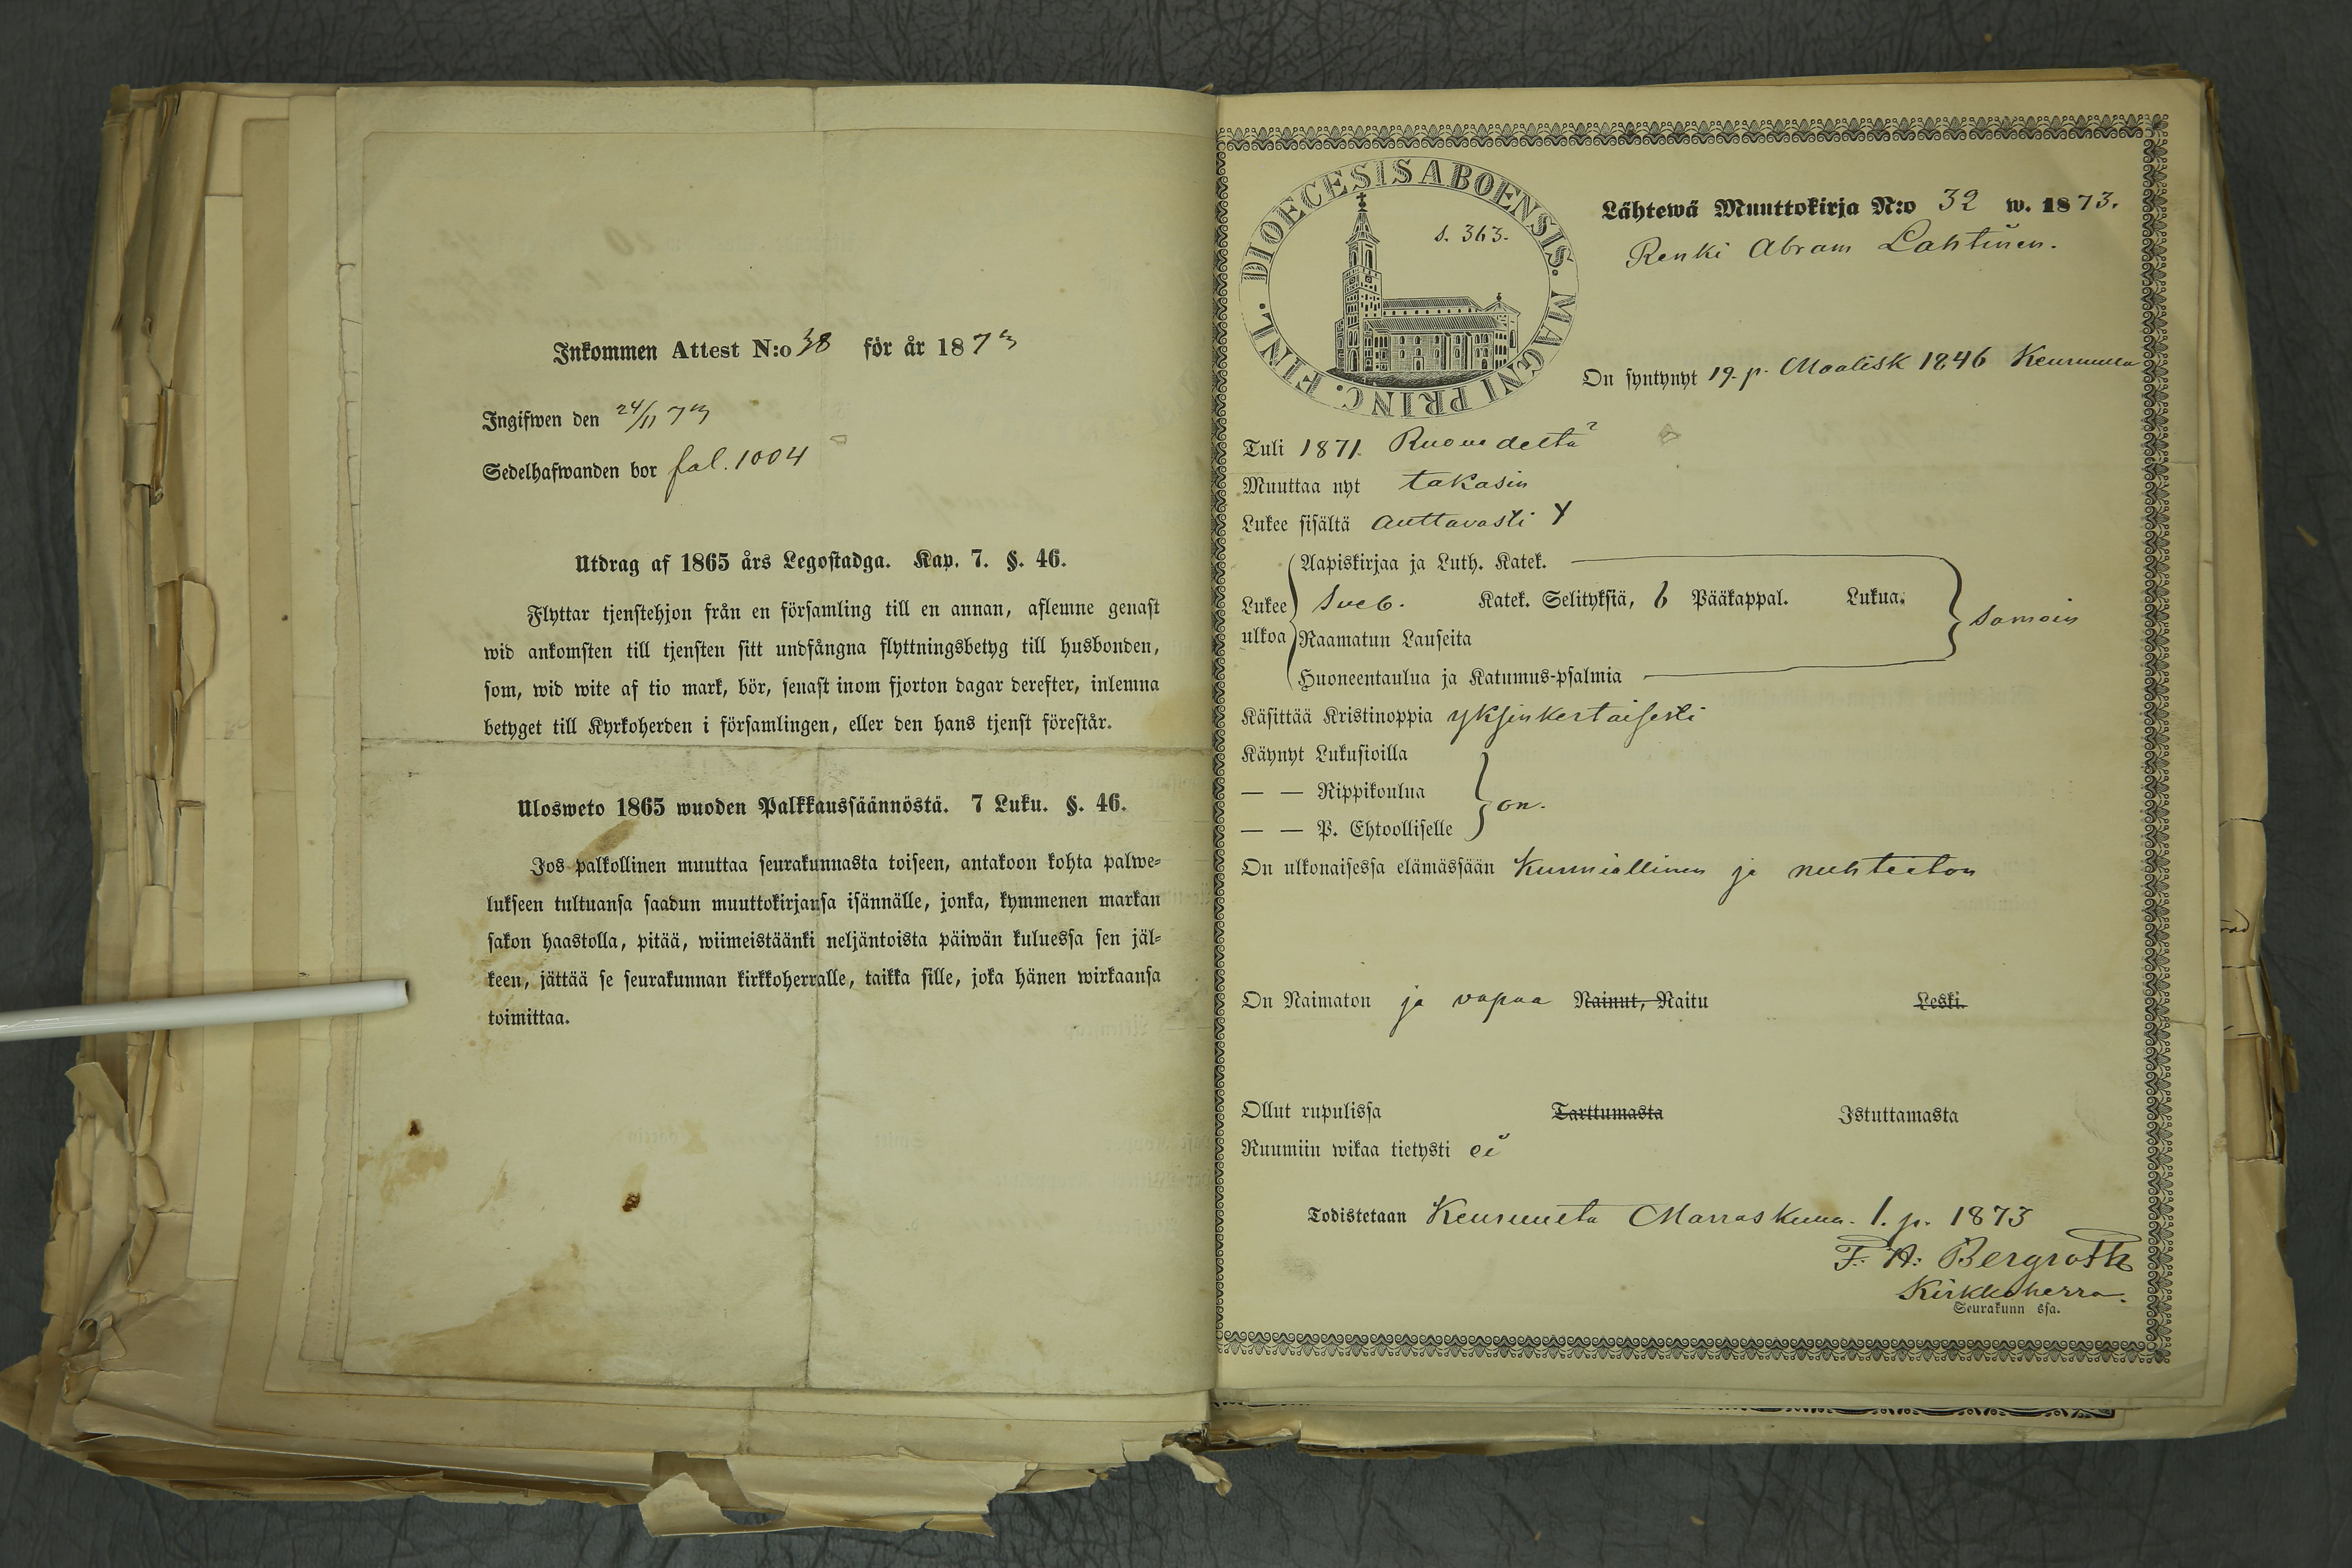 Inkommen Attest N:o 38 för år 1873
Ingifwen den 24/11 73
Sedelhafwanden bor fol. 1004
Utdrag af 1865 års Legostadga. Kap. 7. §. 46.
Flyttar tjenstehjon från en församling till en annan, aflemne genast
wid ankomsten till tjensten sitt undfångna flyttningsbetyg till husbonden,
som, wid wite af tio mark, bör, senast inom fjorton dagar derefter, inlemna
betyget till Kyrkoherden i församlingen, eller den hans tjenst förestår.
Ulosweto 1865 wuoden Palkkaussäännöstä. 7 Luku. §. 46.
Jos palkollinen muuttaa seurakunnasta toiseen, antakoon kohta palwe-
lukseen tultuansa saadun muuttokirjansa isännälle, jonka, kymmenen markan
sakon haastolla, pitää, wiimeistäänki neljäntoista päiwän kuluessa sen jäl-
keen, jättää se seurakunnan kirkkoherralle, taikka sille, joka hänen wirkaansa
toimittaa.
DIOECESIS ABOENSIS. MAGNI PRINC. FINL.
s. 363.
Lähtewä Muuttokirja N:o 32 w. 1873.
Renki Abram Lahtinen.
On syntynyt 19. p. Maalisk 1846 Keuruulla
Tuli 1871 Ruovedeltä
Muuttaa nyt takasin
Lukee sisältä auttavasti
Aapiskirjaa ja Luth. Katek.
Lukee Sveb. Katek. Selityksiä, 6 Pääkappal. Lukua. samoin
ulkoa Raamatun Lauseita
Huoneentaulua ja Katumus-psalmia
Käsittää Kristinoppia yksinkertaisesti
Käynyt Lukusioilla
— — Rippikoulua on.
— — P. Ehtoolliselle
On ulkonaisessa elämässään kunniallinen ja nuhteeton
On Naimaton ja vapaa Nainut, Naitu Leski.
Ollut rupulissa Tarttumasta Istuttamasta
Ruumiin wikaa tietysti ei
Todistetaan Keuruulta Marraskuun. 1. p. 1873
F. A: Bergroth
Kirkkoherra.
Seurakunn ssa.